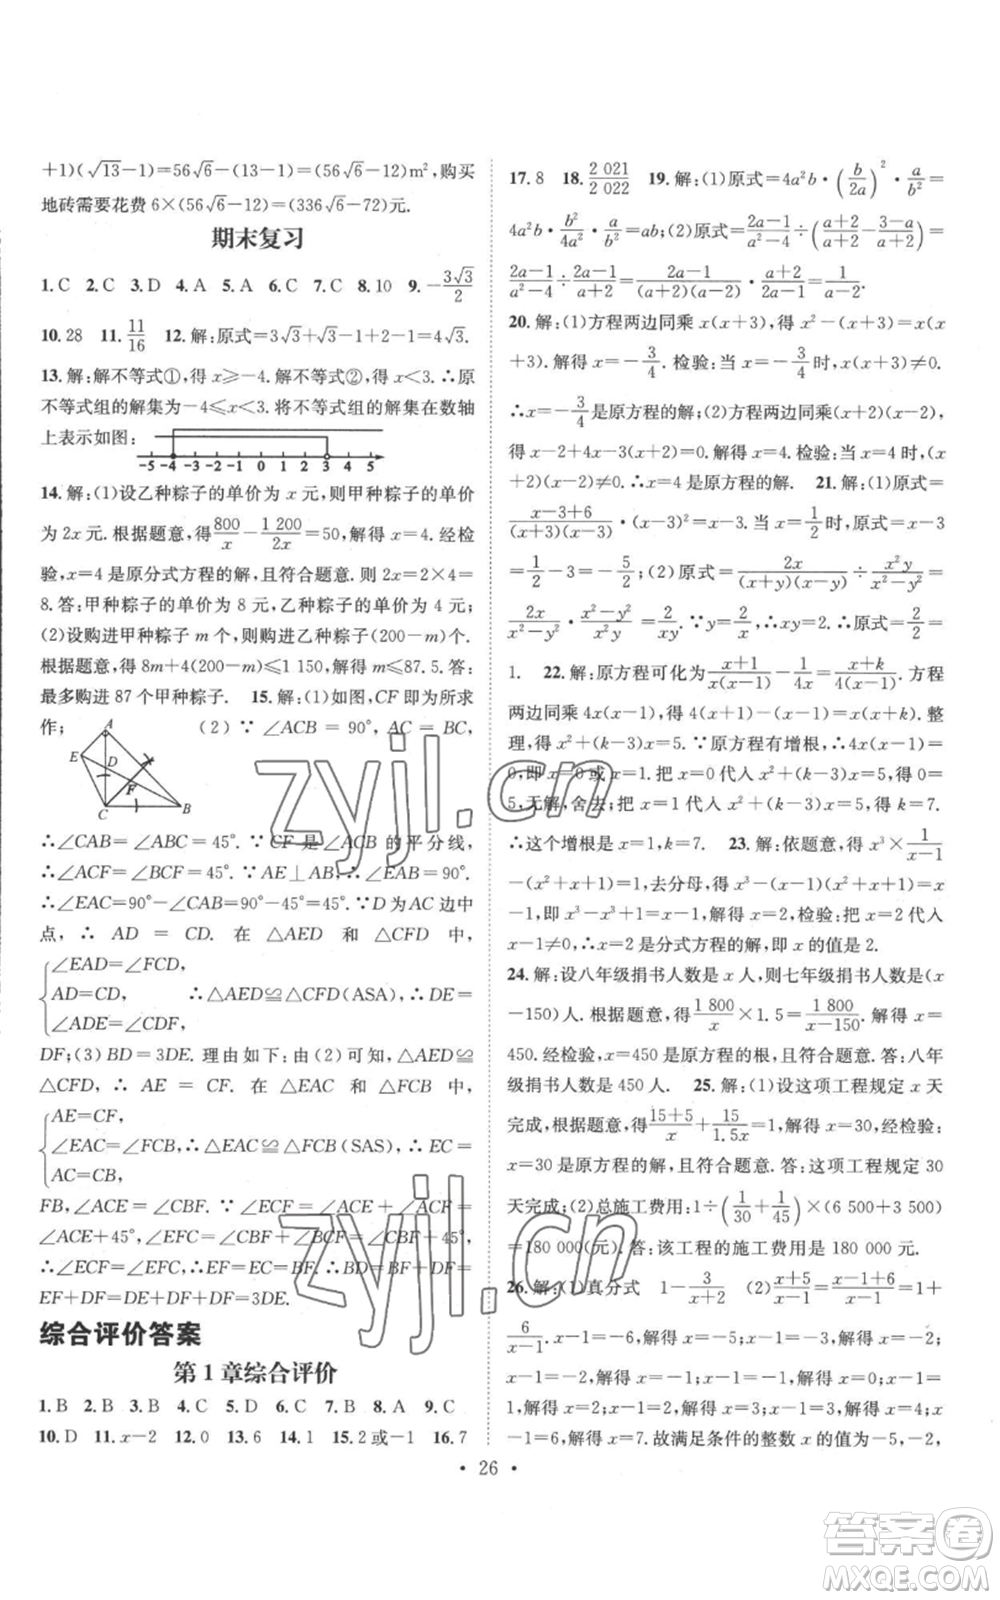 +1)(√13-1)=56√6-(13-1)=(56√6-12)m²,购买
地砖需要花费 6×(56√6-12)=(336√6-72)元.
期末复习
1.C 2.C 3.D 4.A 5.A 6.C 7.C 8.10 9.-3√3/2
10.28 11.11/16 12.解:原式=3√3+√3-1+2-1=4√3.
13.解:解不等式①,得 x≥-4.解不等式②,得 x<3.∴原
不等式组的解集为-4≤x<3.将不等式组的解集在数轴
上表示如图:
-5 -4 -3 -2 -1 0 1 2 3 4 5
14.解:(1)设乙种粽子的单价为 x 元,则甲种粽子的单价
为 2x 元.根据题意,得 800/x - 1 200/2x =50,解得 x=4.经检
验,x=4 是原分式方程的解,且符合题意.则 2x=2×4=
8.答:甲种粽子的单价为 8 元,乙种粽子的单价为 4 元;
(2)设购进甲种粽子 m 个,则购进乙种粽子(200-m)个.
根据题意,得 8m+4(200-m)≤1 150,解得 m≤87.5.答:
最多购进 87 个甲种粽子. 15.解:(1)如图,CF 即为所求
作; (2) ∵ ∠ACB = 90°, AC = BC,
A
E
D
F
C
B
∴∠CAB=∠ABC=45°. ∵ CF 是∠ACB 的平分线,
∴∠ACF=∠BCF=45°. ∵AE⊥AB,∴∠EAB=90°,
∴∠EAC=90°-∠CAB=90°-45°=45°. ∵D 为 AC 边中
点, ∴ AD = CD. 在 △AED 和 △CFD 中,
∠EAD=∠FCD,
AD=CD, ∴△AED≌△CFD(ASA),∴DE=
∠ADE=∠CDF,
DF;(3)BD=3DE.理由如下:由(2)可知,△AED≌
△CFD, ∴ AE = CF. 在 △EAC 和 △FCB 中,
AE=CF,
∠EAC=∠FCB, ∴△EAC≌△FCB(SAS),∴EC=
AC=CB,
FB,∠ACE=∠CBF. ∵∠ECF=∠ACE+∠ACF=
∠ACE+45°,∠EFC=∠CBF+∠BCF=∠CBF+45°,
∴∠ECF=∠EFC,∴EF=EC=BF,∴BD=BF+DF=
EF+DF=DE+DF+DF=3DE.
综合评价答案
第 1 章综合评价
1.B 2.B 3.B 4.C 5.D 6.C 7.B 8.A 9.C
10.D 11.x-2 12.0 13.6 14.1 15.2或-1 16.7
17.8 18.2 021/2 022 19.解:(1)原式=4a²b·(b/2a)²·a/b²=
4a²b·b²/4a²·a/b²=ab;(2)原式=2a-1/a²-4÷(a/a+2+3-a/a+2)=
2a-1/a²-4÷2a-1/a+2=2a-1/(a+2)(a-2)·a+2/2a-1=1/a-2.
20.解:(1)方程两边同乘 x(x+3),得 x²-(x+3)=x(x+
3),解得 x=-3/4.检验:当 x=-3/4时,x(x+3)≠0.
∴x=-3/4是原方程的解;(2)方程两边同乘(x+2)(x-2),
得 x-2+4x=2(x+2).解得 x=4.检验:当 x=4 时,
(x+2)(x-2)≠0.∴x=4 是原方程的解. 21.解:(1)原式=
x-3+6/(x+3)(x-3)·(x-3)²=x-3.当 x=1/2时,原式=x-3
=1/2-3=-5/2;(2)原式=2x/(x+y)(x-y)÷x²y/x²-y²=
2x/x²-y²·x²-y²/x²y=2/xy. ∵y=2/x,∴xy=2.∴原式=2/2=
1. 22.解:原方程可化为x+1/x(x-1)-1/4x=x+k/4(x-1).方程
两边同乘 4x(x-1),得 4(x+1)-(x-1)=x(x+k).整
理,得 x²+(k-3)x=5. ∵原方程有增根,∴4x(x-1)=
0,即 x=0 或 x=1.把 x=0 代入 x²+(k-3)x=5,得 0=
5,无解,舍去;把 x=1 代入 x²+(k-3)x=5,得 k=7.
∴这个增根是 x=1,k=7. 23.解:依题意,得 x³×1/x-1
-(x²+x+1)=1.去分母,得 x³-(x-1)(x²+x+1)=
x-1,x³-x³+1=x-1,解得 x=2,检验:把 x=2 代入
x-1≠0,∴x=2 是分式方程的解,即 x 的值是 2.
24.解:设八年级捐书人数是 x 人,则七年级捐书人数是(x
-150)人.根据题意,得1 800/x×1.5=1 800/x-150.解得 x=
450.经检验,x=450 是原方程的根,且符合题意.答:八年
级捐书人数是 450 人. 25.解:(1)设这项工程规定 x 天
完成,根据题意,得15+5/x+15/1.5x=1,解得 x=30,经检验,
x=30 是原方程的解,且符合题意.答:这项工程规定 30
天完成;(2)总施工费用:1÷(1/30+1/45)×(6 500+3 500)
=180 000(元).答:该工程的施工费用是 180 000 元.
26.解:(1)真分式 1-3/x+2 (2)x+5/x-1=x-1+6/x-1=1+
6/x-1.x-1=-6,解得 x=-5;x-1=-3,解得 x=-2;
x-1=-2,解得 x=-1;x-1=-1,解得 x=0;x-1=
1,解得 x=2;x-1=2,解得 x=3;x-1=3,解得 x=4;x
-1=6,解得 x=7.故满足条件的整数 x 的值为-5,-2,
· 26 ·
zyjl.cn
zyjl.cn
答案圈
MXQE.COM